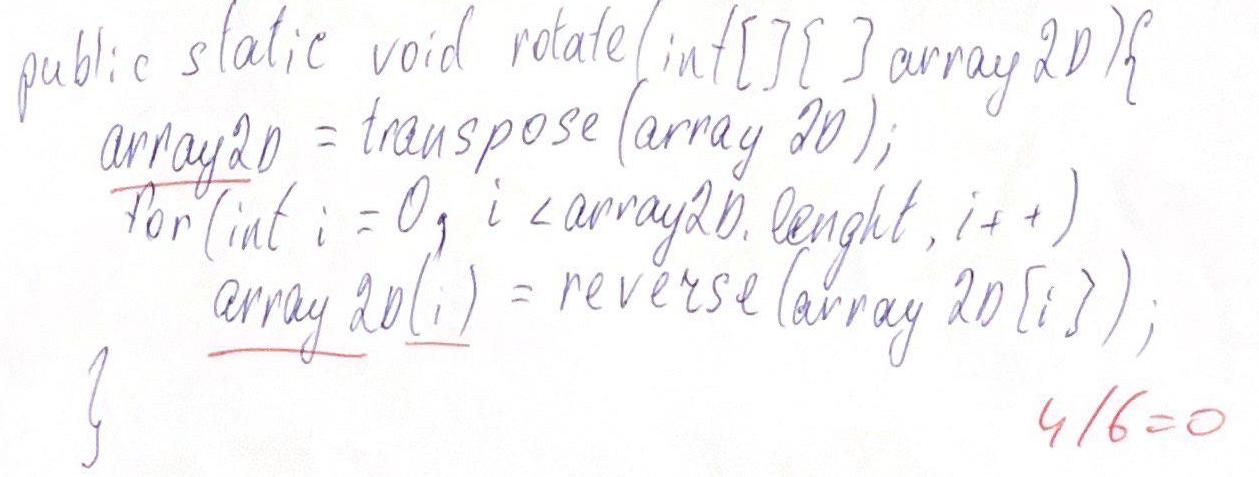 public static void rotate(int[][] array2D){
array2D = transpose(array 2D);
for(int i = 0, i < array2D.lenght, i++)
array 2D(i) = reverse(array 2D[i});
}
4/6=0